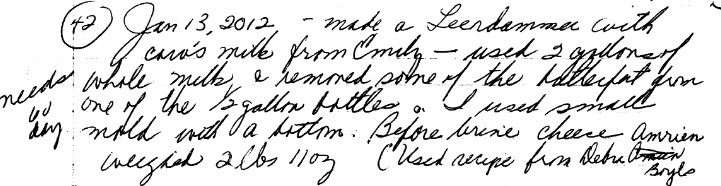 (42) Jan 13, 2012 - made a Leerdammer with
cow's milk from Emily - used 2 gallons of
whole milk & removed some of the butterfat from
one of the 1/2 gallon bottles. I used small
mold with a bottom. Before brine cheese
weighed 2 lbs 11 oz (Used recipe from Debra Amrien
Boyles
needs
60
day